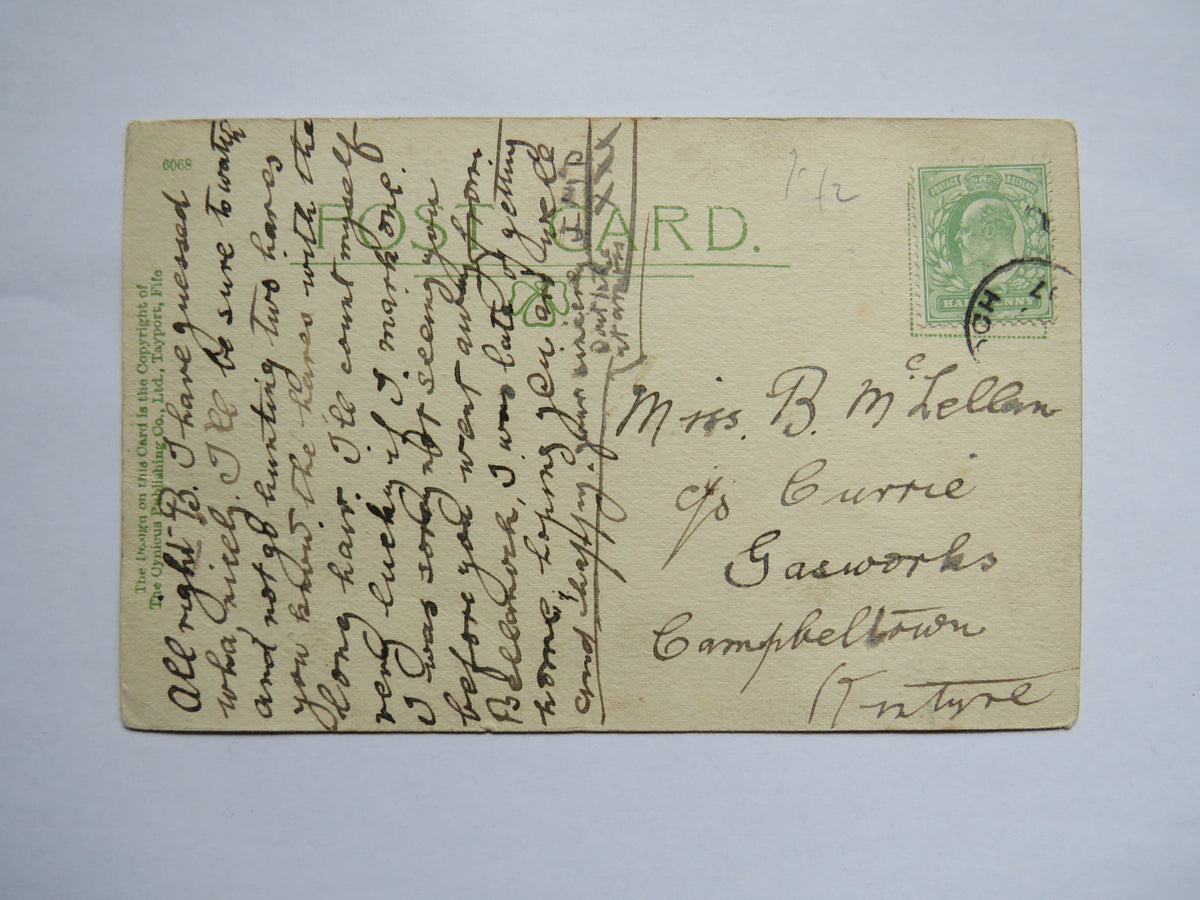 6068
The Design on this Card is the Copyright of
The Cynicus Publishing Co., Ltd., Tayport, Fife
POST CARD.
POSTAGE REVENUE
HALFPENNY
All right B. I have guessed
wha, nicely. I'll be sure to watch
and not go hunting two hares
you know the hares with the
long hair. I'll count myself
very lucky if I mark one.
I was sorry not seeing you
before you went away from
Bellanoch, I was late of getting
home, hoping you are well
and happy. your sincere
XXX
Miss. B. McLellan
c/o Currie
Gasworks
Campbeltown
Kintyre